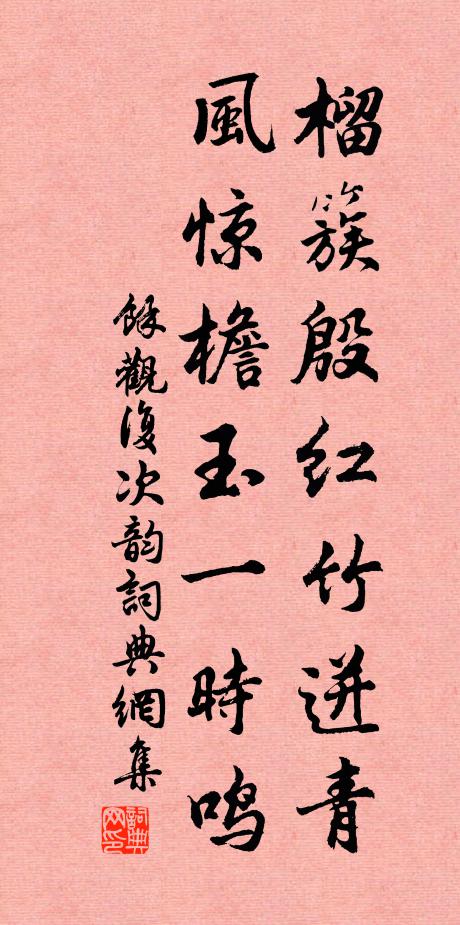 榴簇殷红竹迸青
風惊檐玉一時鸣
餘觀復次韵詞典網集
詞典网印